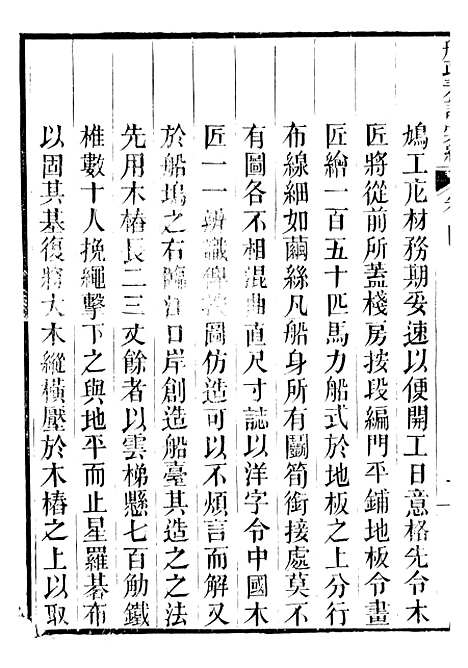 鳩工庀材務期妥速以便開工日意格先令木
匠將從前所蓋棧房按段編門平鋪地板令畫
匠繪一百五十匹馬力船式於地板之上分行
布線細如繭絲凡船身所有鬬筍銜接處莫不
有圖各不相混曲直尺寸誌以洋字令中國木
匠一一辨識俾按圖仿造可以不煩言而解又
於船塢之右臨江口岸創造船臺其造之之法
先用木樁長二三丈餘者以雲梯懸七百觔鐵
椎數十人挽繩擊下之與地平而止星羅碁布
以固其基復將大木縱橫壓於木樁之上以取